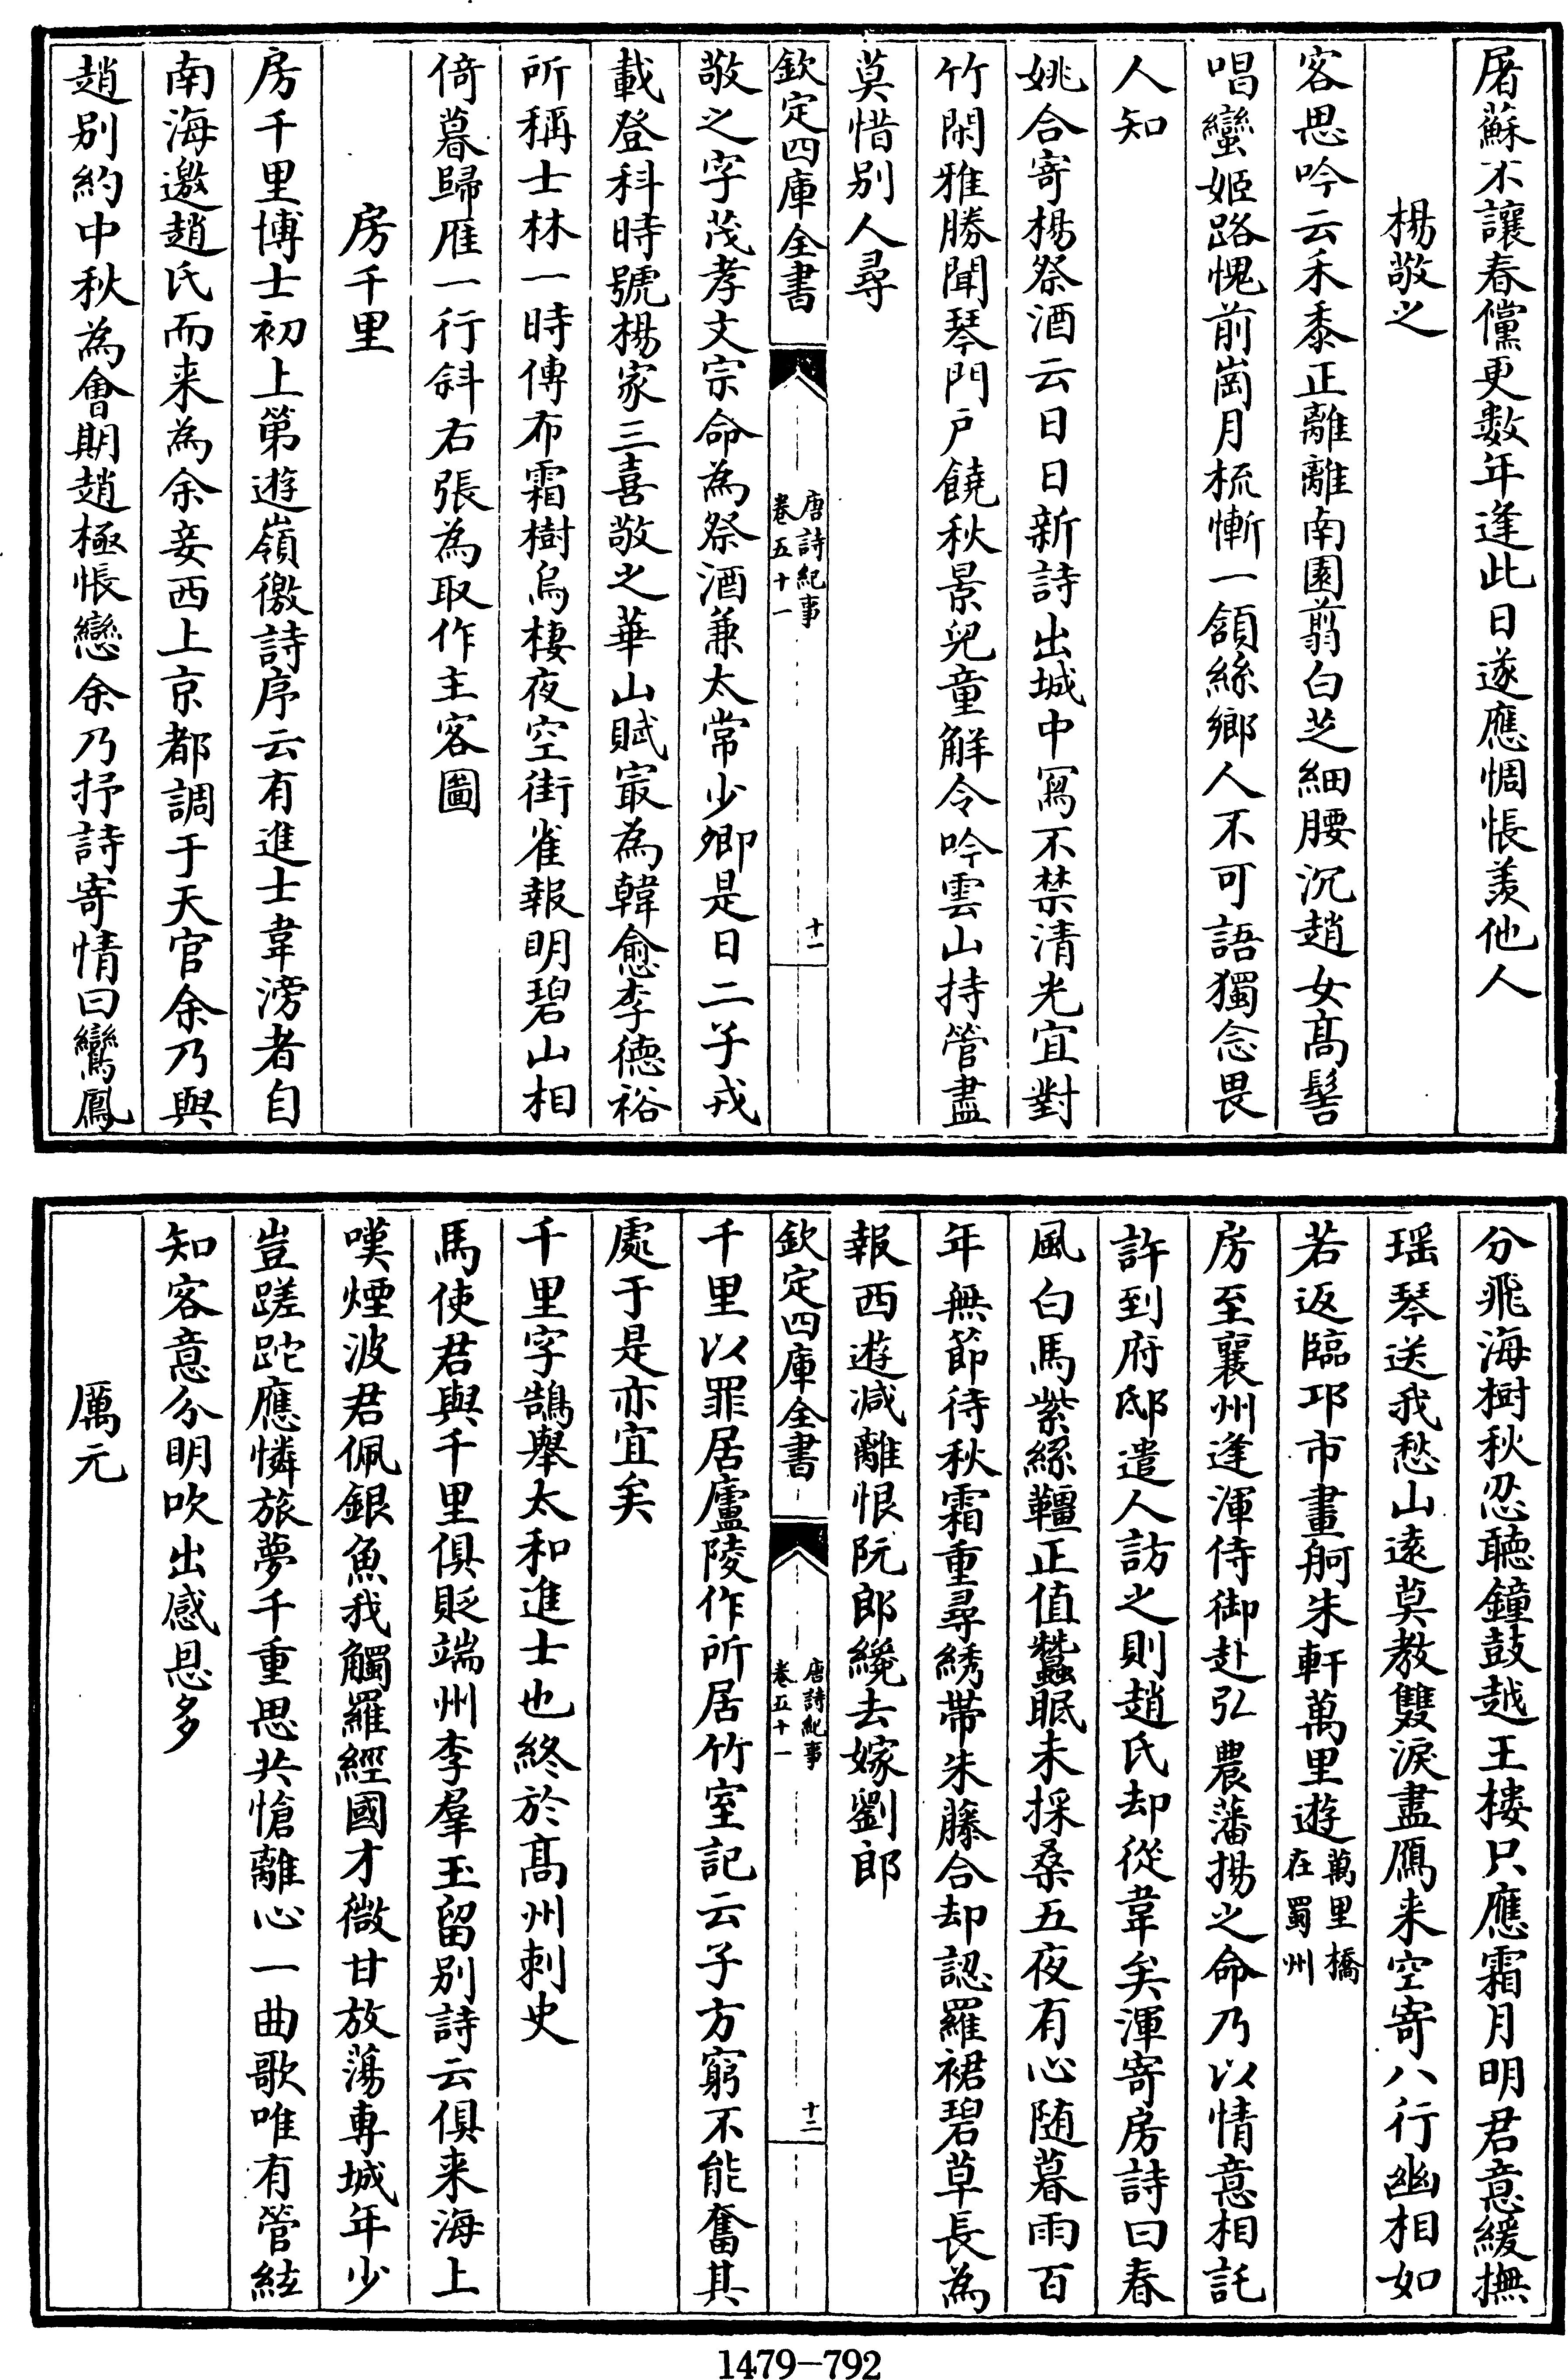 屠蘇不讓春儻更數年逢此日遂應惆悵羡他人
楊敬之
客思吟云禾黍正離離南園翦白芝細腰沉趙女髙髻
唱蠻姬路愧前崗月梳慚一頷絲鄉人不可語獨念畏
人知
姚合寄楊祭酒云日日新詩出城中寫不禁清光宜對
竹閑雅勝聞琴門戶饒秋景兒童解令吟雲山持管盡
莫惜别人尋
欽定四庫全書
唐詩紀事
卷五十一
十一
敬之字茂孝文宗命為祭酒兼太常少卿是日二子戎
載登科時號楊家三喜敬之華山賦㝡為韓愈李德裕
所稱士林一時傳布霜樹烏棲夜空街雀報明碧山相
倚暮歸雁一行斜右張為取作主客圖
房千里
房千里博士初上第遊嶺徼詩序云有進士韋滂者自
南海邀趙氏而来為余妾西上京都調于天官余乃與
趙别約中秋為會期趙極悵戀余乃抒詩寄情曰鸞鳳
分飛海樹秋忍聽鐘鼓越王樓只應霜月明君意緩撫
瑶琴送我愁山遠莫教雙淚盡鴈来空寄八行幽相如
若返臨邛市畫舸朱軒萬里遊萬里橋在蜀州
房至襄州逢渾侍御赴弘農藩揚之命乃以情意相託
許到府邸遣人訪之則趙氏却從韋矣渾寄房詩曰春
風白馬紫絲韁正值蠶眠未採桑五夜有心随暮雨百
年無節待秋霜重尋綉帶朱藤合却認羅裙碧草長為
報西遊減離恨阮郎纔去嫁劉郎
欽定四庫全書
唐詩紀事
卷五十一
十二
千里以罪居廬陵作所居竹室記云子方窮不能奮其
處于是亦宜矣
千里字鵠舉太和進士也終於髙州刺史
馬使君與千里俱貶端州李羣玉留别詩云俱来海上
嘆煙波君佩銀魚我觸羅經國才微甘放蕩専城年少
豈蹉跎應憐旅夢千重思共愴離心一曲歌唯有管絃
知客意分明吹出感恩多
厲元
1479-792